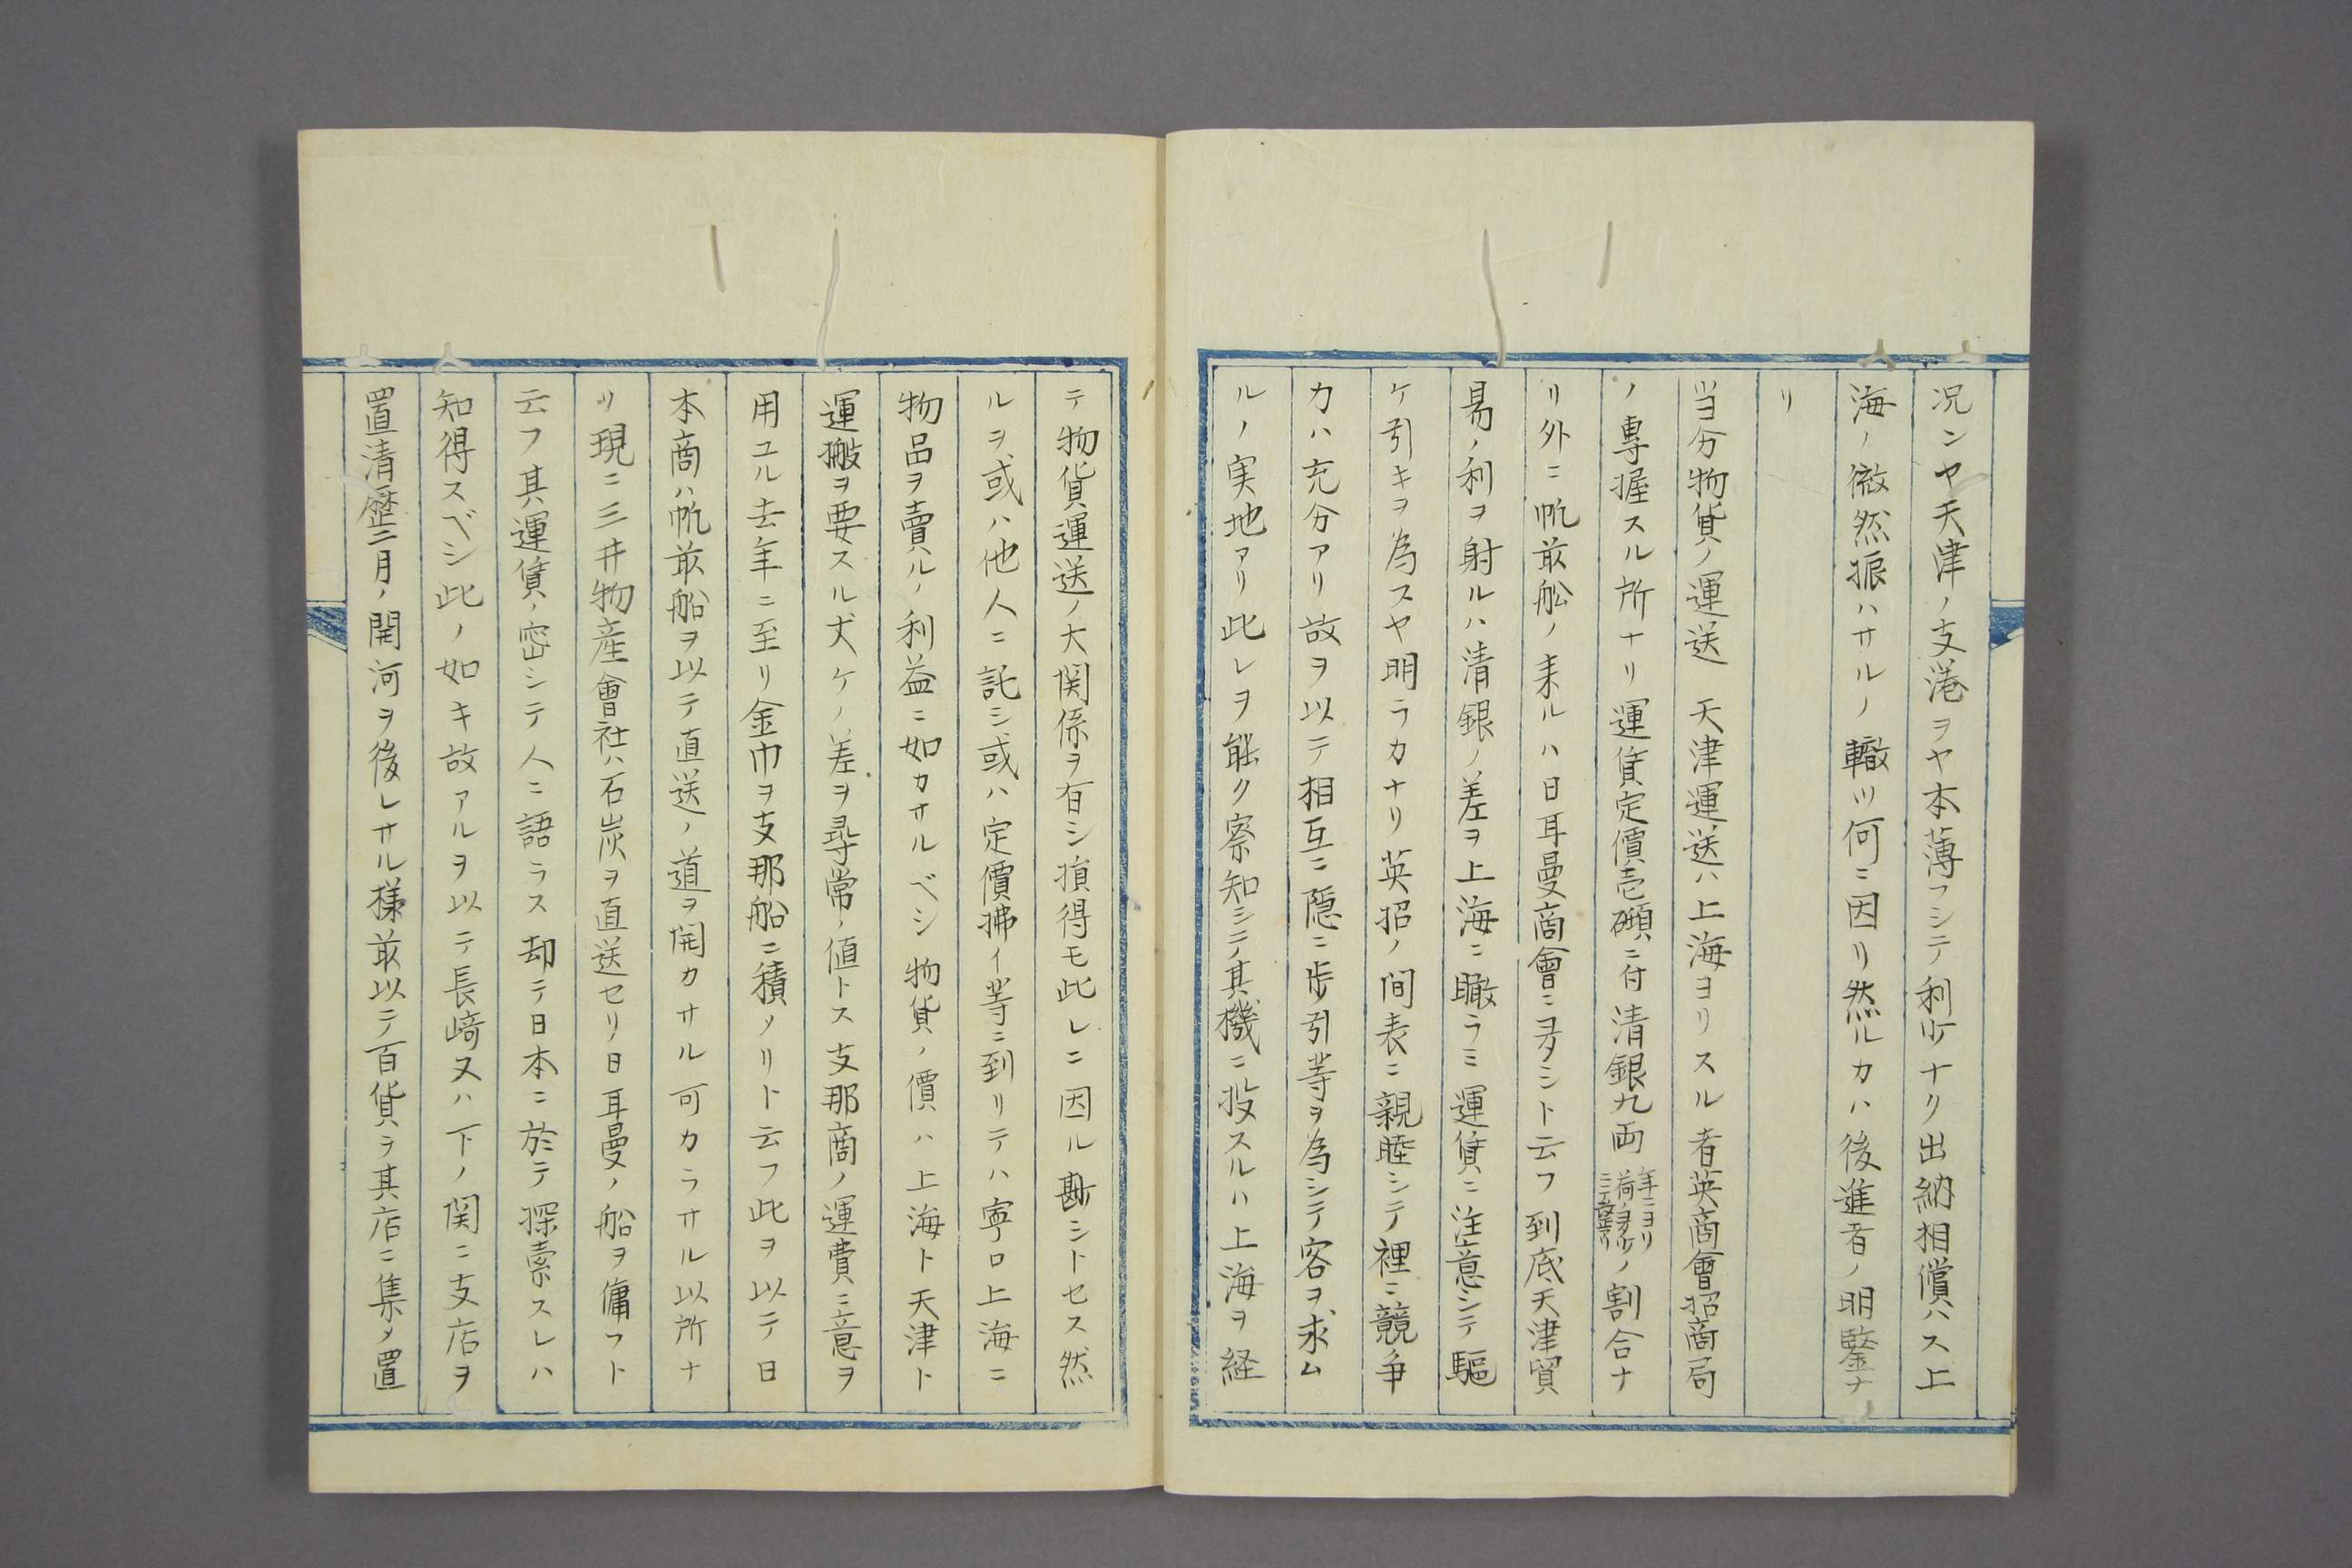 况ンヤ天津ノ支港ヲヤ本薄フシテ利少ナク出納相償ハス上
海ノ微然振ハサルノ轍ツ何ニ因リ然ルカハ後進者ノ明鑒ナ
リ
当分物貨ノ運送　天津運送ハ上海ヨリスル者英商會招商局
ノ專握スル所ナリ運賃定價壱噸ニ付清銀九両年ニヨリ荷ノ多少ニテ差アリノ割合ナ
リ外ニ帆前舩ノ来ルハ日耳曼商會ニ多シト云フ到底天津貿
易ノ利ヲ射ルハ清銀ノ差ヲ上海ニ瞰ラミ運賃ニ注意シテ驅
ケ引キヲ為スヤ明ラカナリ英招ノ間表ニ親睦シテ裡ニ競争
カハ充分アリ故ヲ以テ相互ニ隠ニ歩引等ヲ為シテ客ヲ求ム
ルノ実地アリ此レヲ能ク察知シテ其機ニ投スルハ上海ヲ経
テ物貨運送ノ大関係ヲ有シ損得モ此レニ因ル尠シトセス然
ルヲ或ハ他人ニ託シ或ハ定價拂イ等ニ到リテハ寧ロ上海ニ
物品ヲ賣ルノ利益ニ如カサルベシ物貨ノ價ハ上海ト天津ト
運搬ヲ要スル丈ケノ差ヲ尋常ノ値トス支那商ノ運費ニ意ヲ
用ユル去年ニ至リ金巾ヲ支那船ニ積メリト云フ此ヲ以テ日
本商ハ帆前船ヲ以テ直送ノ道ヲ開カサル可カラサル以所ナ
リ現ニ三井物産會社ハ石炭ヲ直送セリ日耳曼ノ船ヲ傭フト
云フ其運賃ノ密シテ人ニ語ラス却テ日本ニ於テ探索スレハ
知得スベシ此ノ如キ故アルヲ以テ長﨑又ハ下ノ関ニ支店ヲ
置清歴二月ノ開河ヲ後レサル様前以テ百貨ヲ其店ニ集メ置